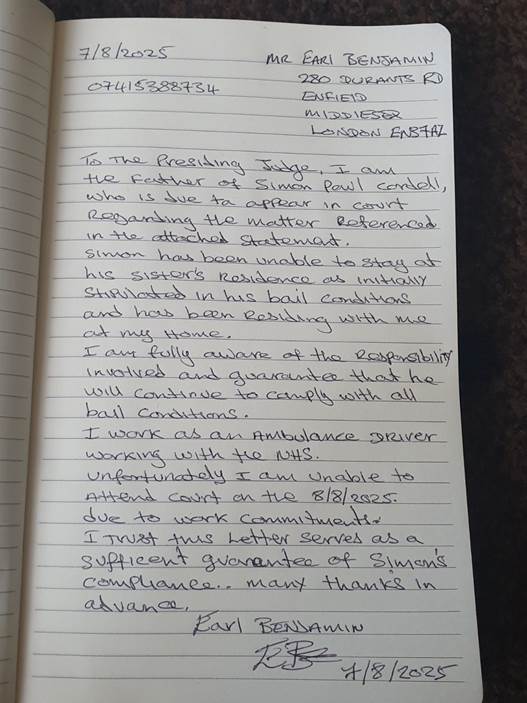 7/8/2025
MR EARL BENJAMIN
07415388734
280 DURANTS RD
ENFIELD
MIDDLESEX
LONDON EN37AZ
To The Presiding Judge, I am
the Father of Simon Paul Cordell,
who is due to appear in court
Regarding the matter Referenced
in the attached statement.
Simon has been unable to stay at
his sister's Residence as initially
stipulated in his bail conditions
and has been Residing with me
at my Home.
I am fully aware of the Responsibility
involved and guarantee that he
will continue to comply with all
bail conditions.
I work as an AMBULANCE DRIVER
working with the NHS.
unfortunately I am unable to
Attend court on the 8/8/2025.
due to work commitments.
I Trust this Letter serves as a
sufficent guarantee of Simon's
compliance.. many thanks in
advance.
Earl BENJAMIN
7/8/2025